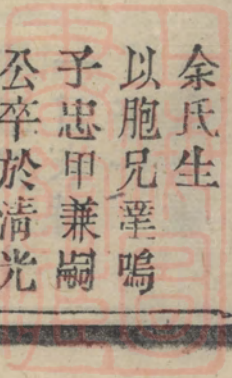 余氏生
以胞兄肇鳴
子忠甲兼嗣
公卒於淸光